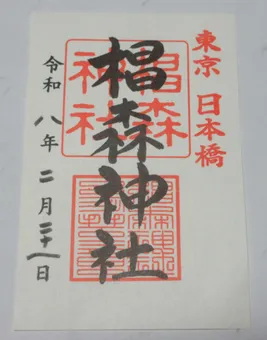 東京 日本橋
椙森神社
椙森神社
令和八年二月二十一日